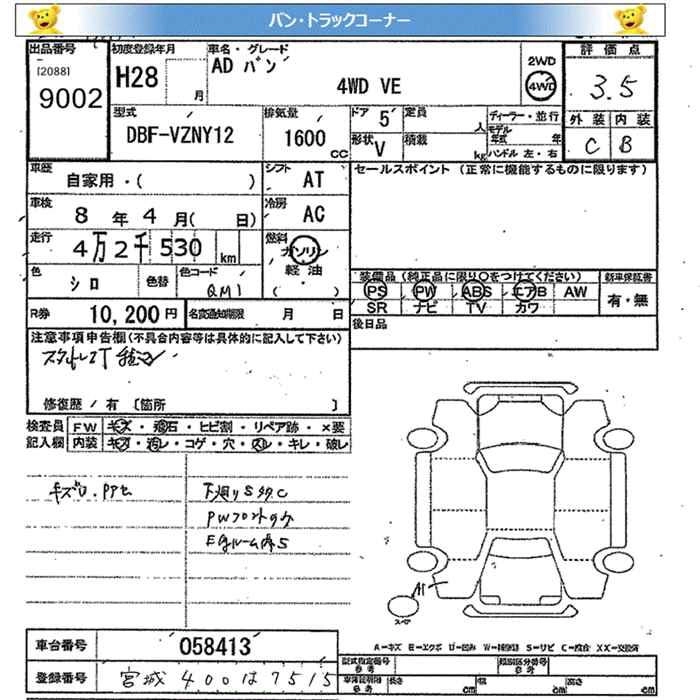 バン・トラックコーナー
出品番号 初度登録年月 車名・グレード 評価点
[2088] 9002 H28 月 AD バン 4WD VE 2WD 4WD 3.5
型式 排気量 ドア 5 定員 人 ディーラー・並行 外装 内装
DBF-VZNY12 1600 CC 形状 V 積載 kg モデル年式 年 C B
ハンドル 左・右
車歴 自家用・( ) シフト AT セールスポイント (正常に機能するものに限ります)
車検 8 年 4 月( 日) 冷房 AC
走行 4万2千530 km 燃料 ガソリン
軽油
色 シロ 色替 色コード QM1 ( )
装備品 (純正品に限り○をつけてください) 新車保証書
PS PW ABS エアB AW 有・無
SR ナビ TV カワ
R券 10,200円 名変通知期限 月 日 後日品
注意事項申告欄(不具合内容等は具体的に記入して下さい)
修復歴 / 有 [箇所 ]
検査員 FW キズ・飛石・ヒビ割・リペア跡・×要
記入欄 内装 キズ・汚レ・コゲ・穴・スレ・キレ・破レ
下廻りSサC
PWフロントのみ
A1
スペア
A=キズ E=エクボ U=凹み W=補修跡 S=サビ C=腐食 XX=交換済
車台番号 058413
型式指定番号 参考 類別区分番号 参考
登録番号 宮城 400は7515
車庫証明用 参考 長さ cm 幅 cm 高さ cm